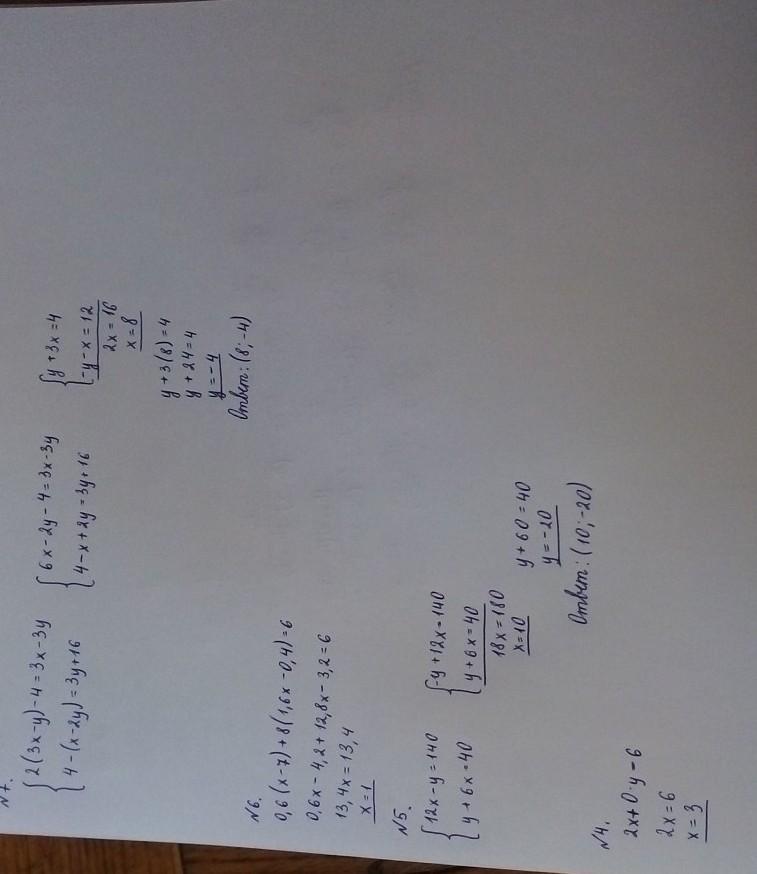 N7.
{2(3x-y)-4=3x-3y
4-(x-2y)=3y+16
{6x-2y-4=3x-3y
4-x+2y=3y+16
{y+3x=4
-y-x=12
2x=16
x=8
y+3(8)=4
y+24=4
y=-4
Ответ: (8;-4)
N6.
0,6(x-7)+8(1,6x-0,4)=6
0,6x-4,2+12,8x-3,2=6
13,4x=13,4
x=1
N5.
{12x-y=140
y+6x=40
{-y+12x=140
y+6x=40
18x=180
x=10
y+60=40
y=-20
Ответ: (10;-20)
N4.
2x+0·y=6
2x=6
x=3